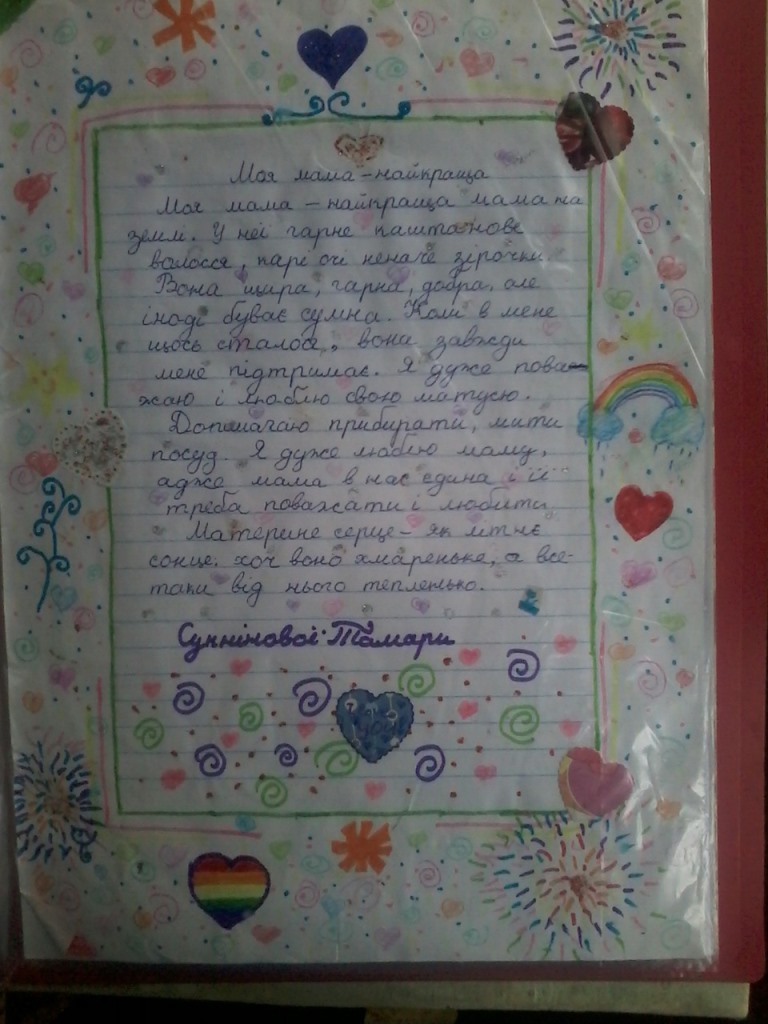 Моя мама – найкраща
Моя мама – найкраща мама на
землі. У неї гарне каштанове
волосся, карі очі неначе зірочки.
Вона щира, гарна, добра, але
іноді буває сумна. Коли в мене
щось сталося, вона завжди
мене підтримає. Я дуже пова-
жаю і люблю свою матусю.
Допомагаю прибирати, мити
посуд. Я дуже люблю маму,
адже мама в нас єдина і її
треба поважати і любити.
Материне серце – як літнє
сонце: хоч воно хмареньке, а все-
таки від нього тепленько.
Суннінової Тамари